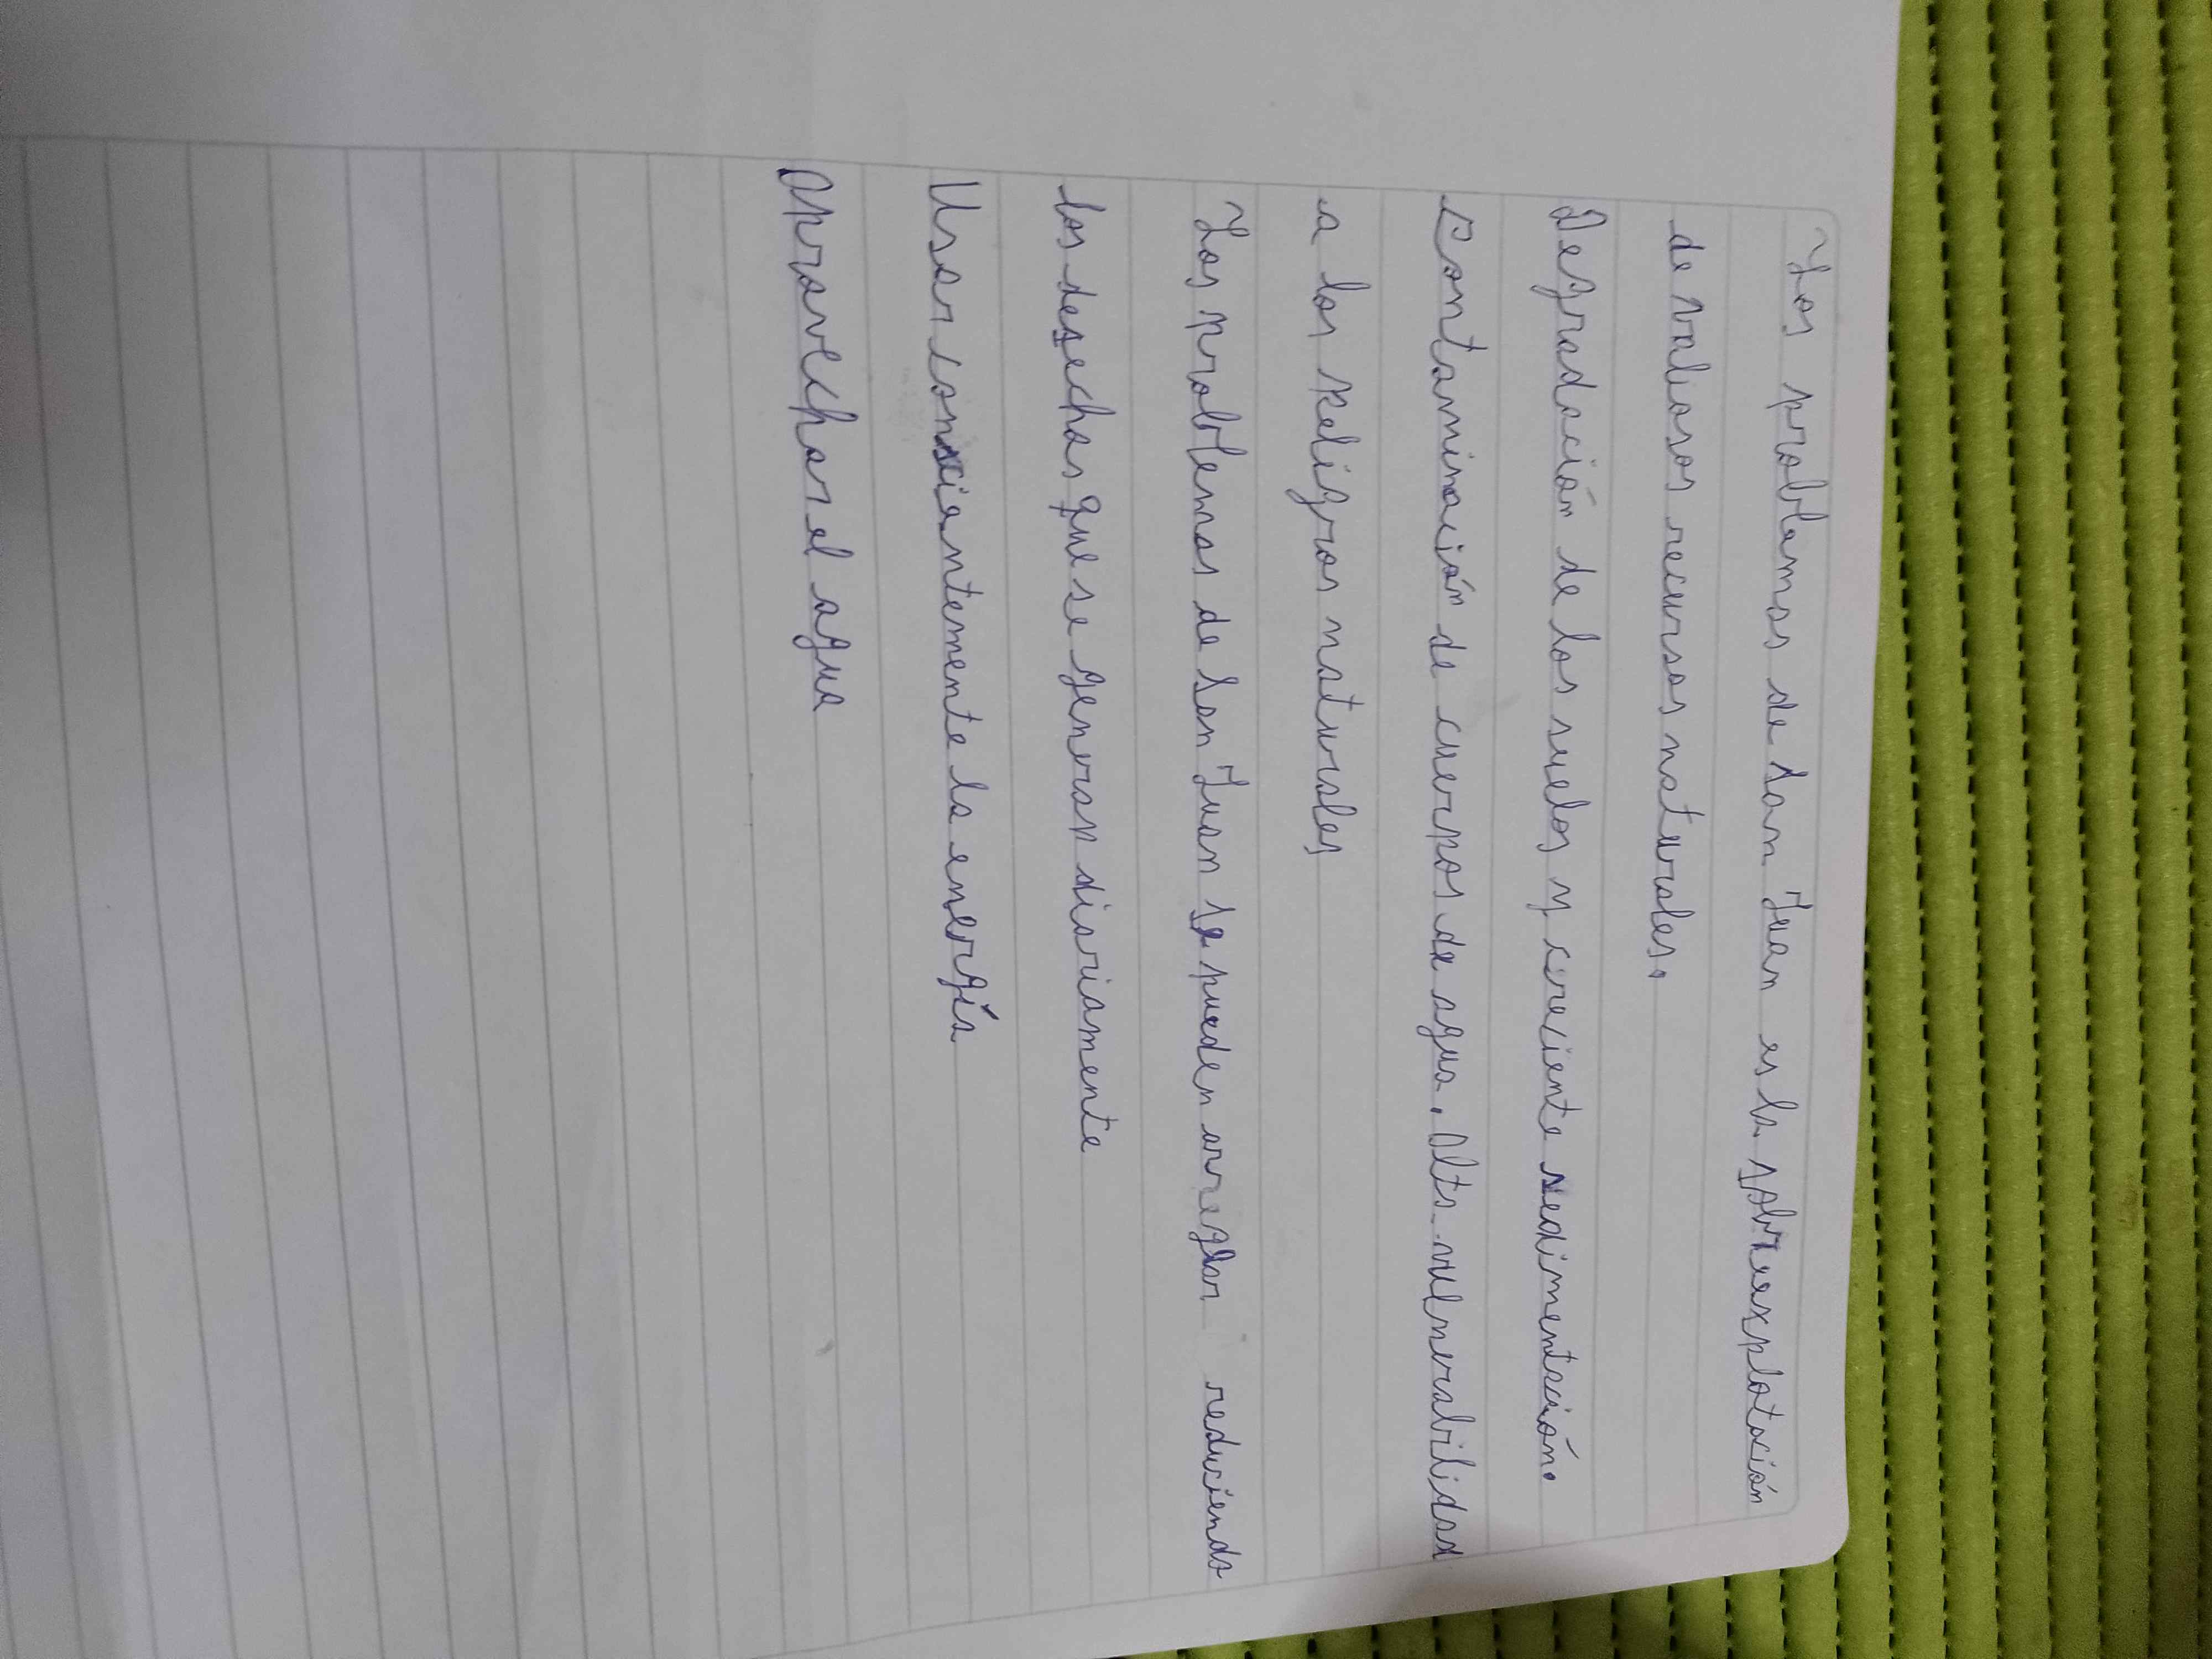 Los problemas de San Juan es la sobreexplotación
de valiosos recursos naturales.
Degradación de los suelos y creciente sedimentación.
Contaminación de cuerpos de agua. Alta vulnerabilidad
a los peligros naturales
Los problemas de San Juan se pueden arreglar reduciendo
los desechos que se generan diariamente
Usar conscientemente la energía
Aprovechar el agua